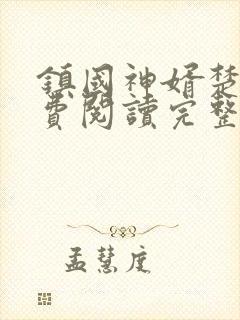 鎮國神婿楚
費閱讀完整
孟慧庭